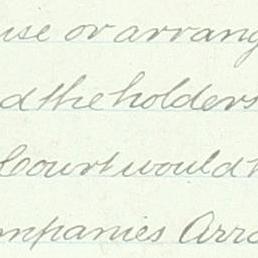 use or arrang
d the holders
Court would
mpanies Arra